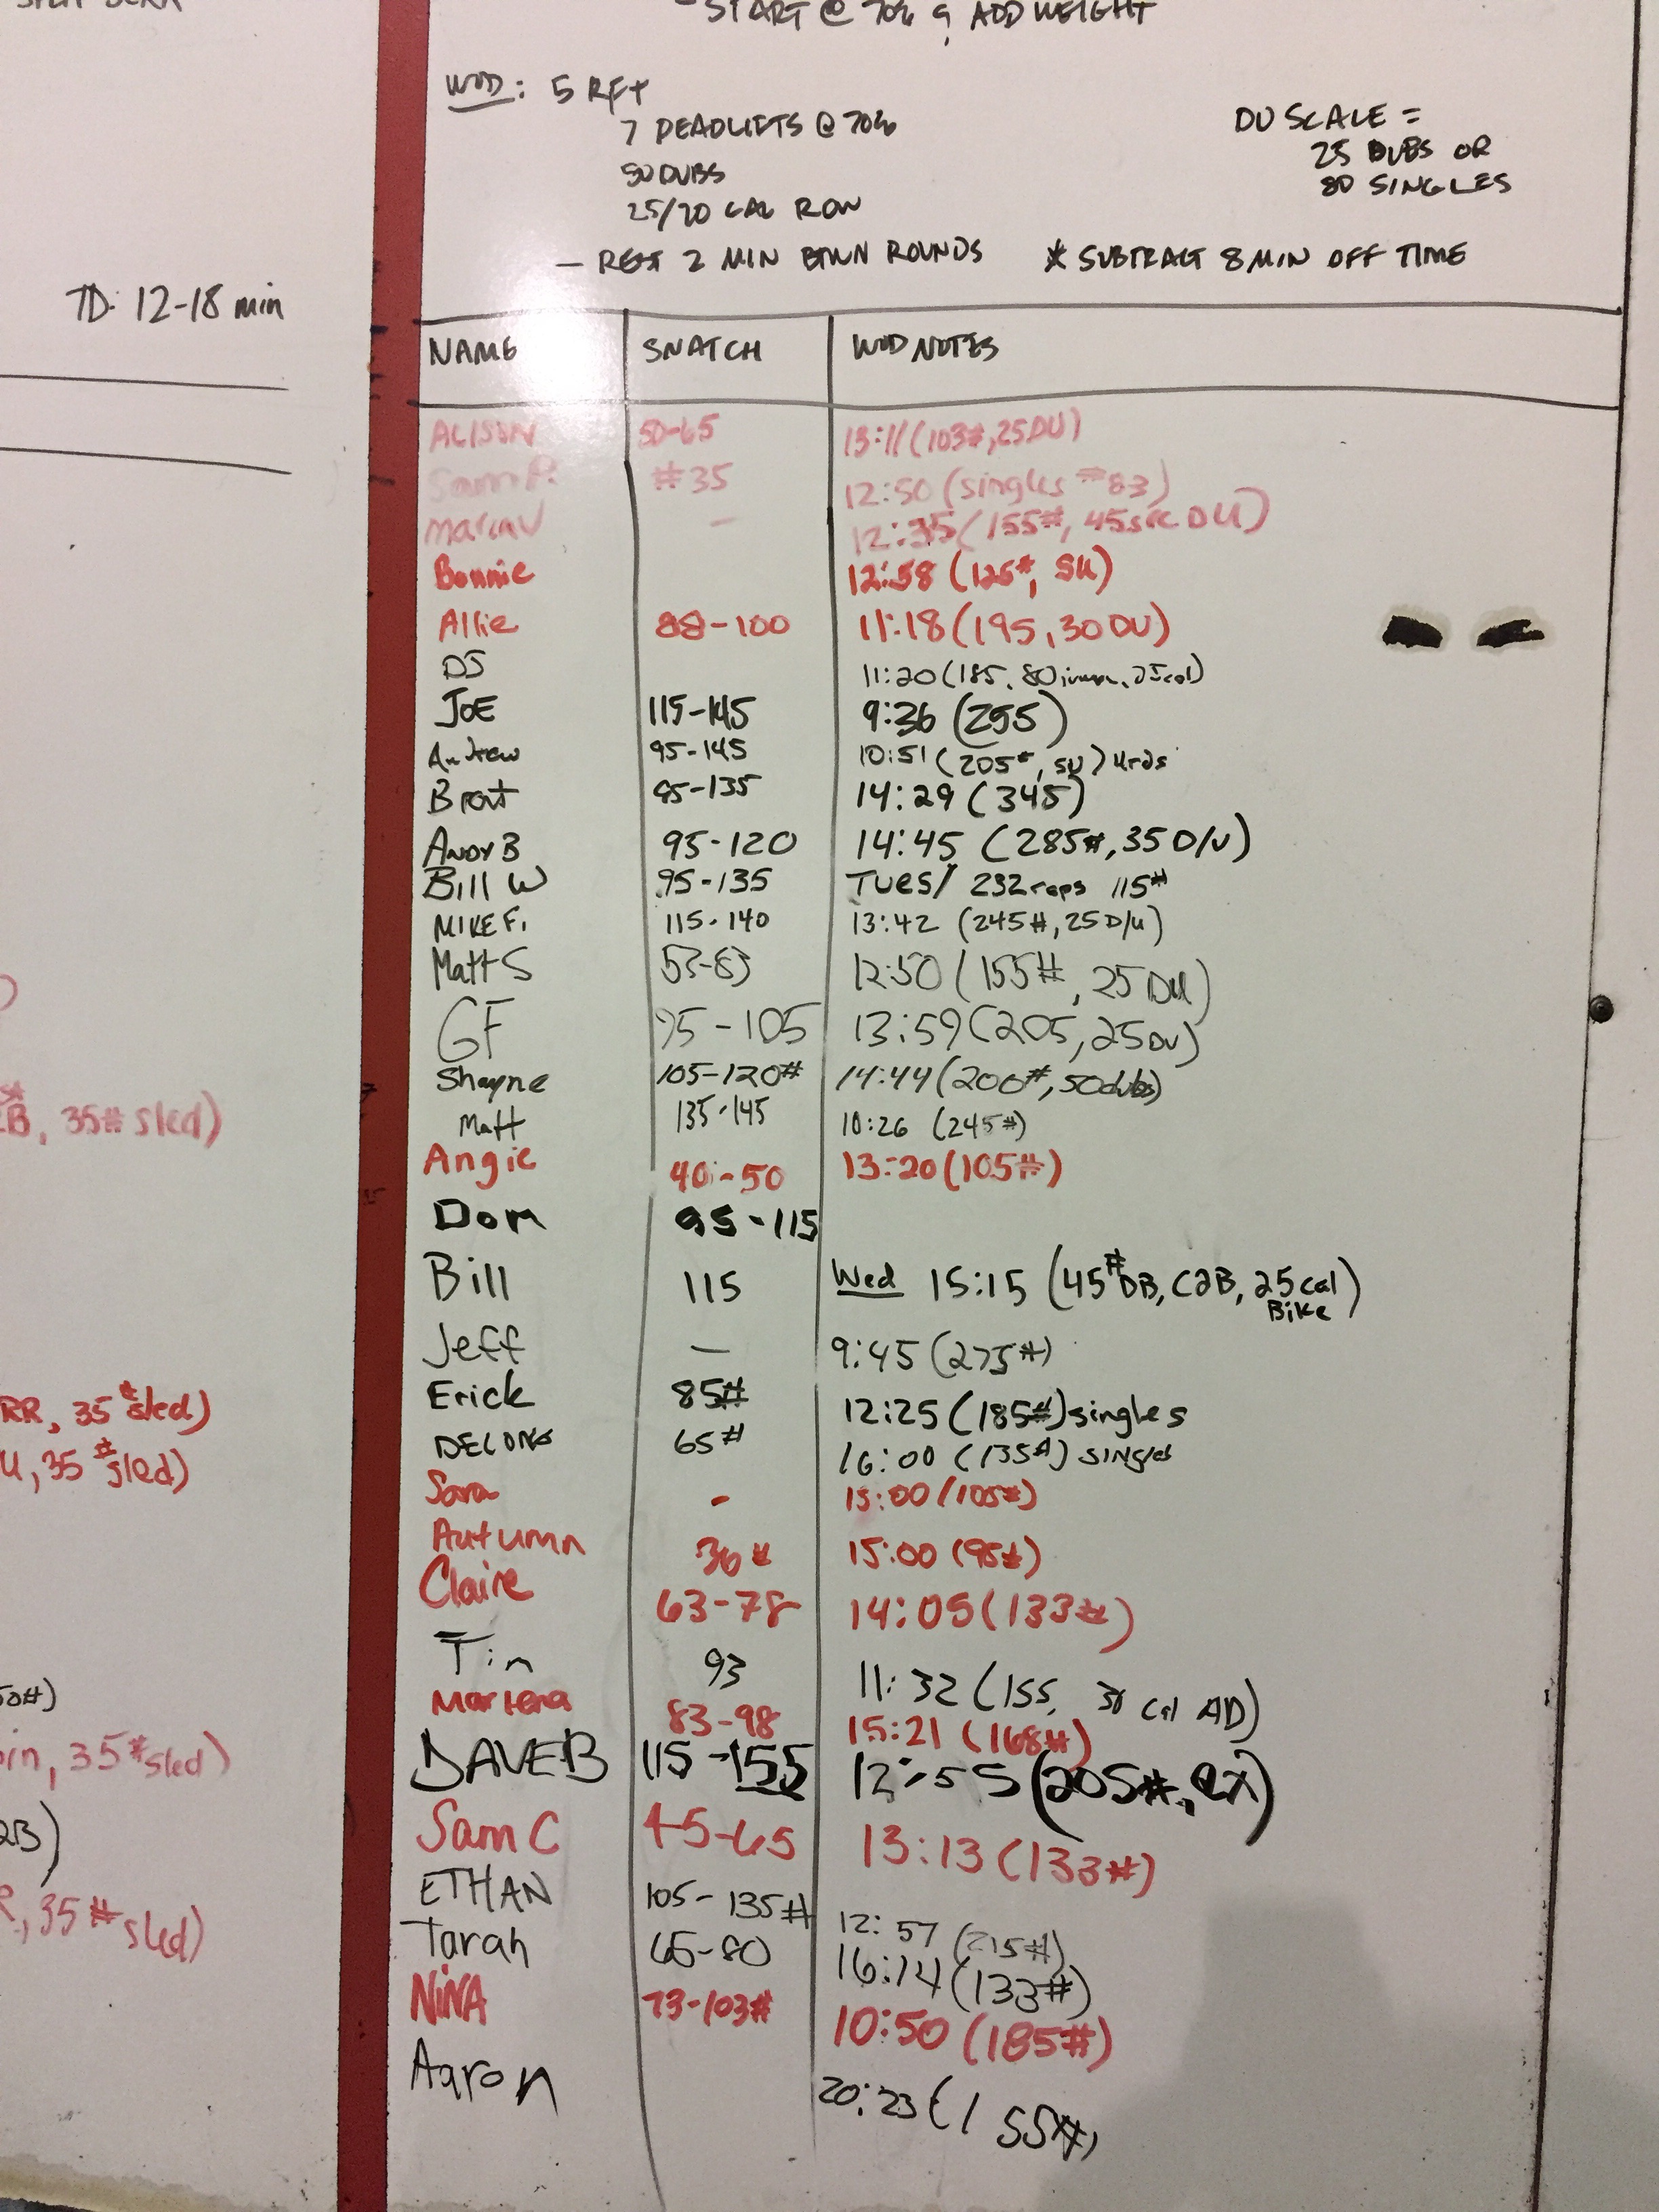 - START @ 70% & ADD WEIGHT
WOD: 5 RFT
7 DEADLIFTS @ 70%
50 DUBS
25/20 CAL ROW
- REST 2 MIN BTWN ROUNDS * SUBTRACT 8 MIN OFF TIME
DU SCALE =
25 DUBS OR
80 SINGLES
TD: 12-18 min
NAME SNATCH WOD NOTES
ALISON 50-65 13:11 (103#, 25DU)
Sam P. #35 12:50 (singles #83)
- 12:35 (155#, 45sec DU)
Bonnie 12:58 (125#, SU)
Allie 88-100 11:18 (195, 30 DU)
DJ 11:20 (185, 80 25cal)
JOE 115-145 9:36 (255)
Andrew 95-145 10:51 (205#, SU) 4rds
Brent 95-135 14:29 (345)
ANDY B 95-120 14:45 (285#, 35 D/U)
Bill W 95-135 TUES/ 232 reps 115#
MIKE F. 115-140 13:42 (245#, 25 D/U)
Matt S 53-83 12:50 (155#, 25 DU)
GF 95-105 13:59 (205, 25 DU)
Shayne 105-120# 14:44 (200#, 50dubs)
Matt 135-145 10:26 (245#)
Angie 40-50 13:20 (105#)
Dom 95-115
Bill 115 Wed 15:15 (45# DB, C2B, 25 Cal Bike)
Jeff — 9:45 (275#)
Erick 85# 12:25 (185#) singles
DELONG 65# 16:00 (135#) singles
Sara - 15:00 (105#)
Autumn 36# 15:00 (95#)
Claire 63-78 14:05 (133#)
Tim 93 11:32 (155, Cal AD)
Marlena 83-98 15:21 (168#)
DAVE B 115-155 12:55 (205#, RX)
Sam C 45-65 13:13 (133#)
ETHAN 105-135# 12:57 (215#)
Tarah 65-80 16:14 (133#)
NINA 73-103# 10:50 (185#)
Aaron 20:23 (155#)
B, 35# sled)
RR, 35# sled)
U, 35# sled)
50#)
in, 35# sled)
2B)
R, 35# sled)